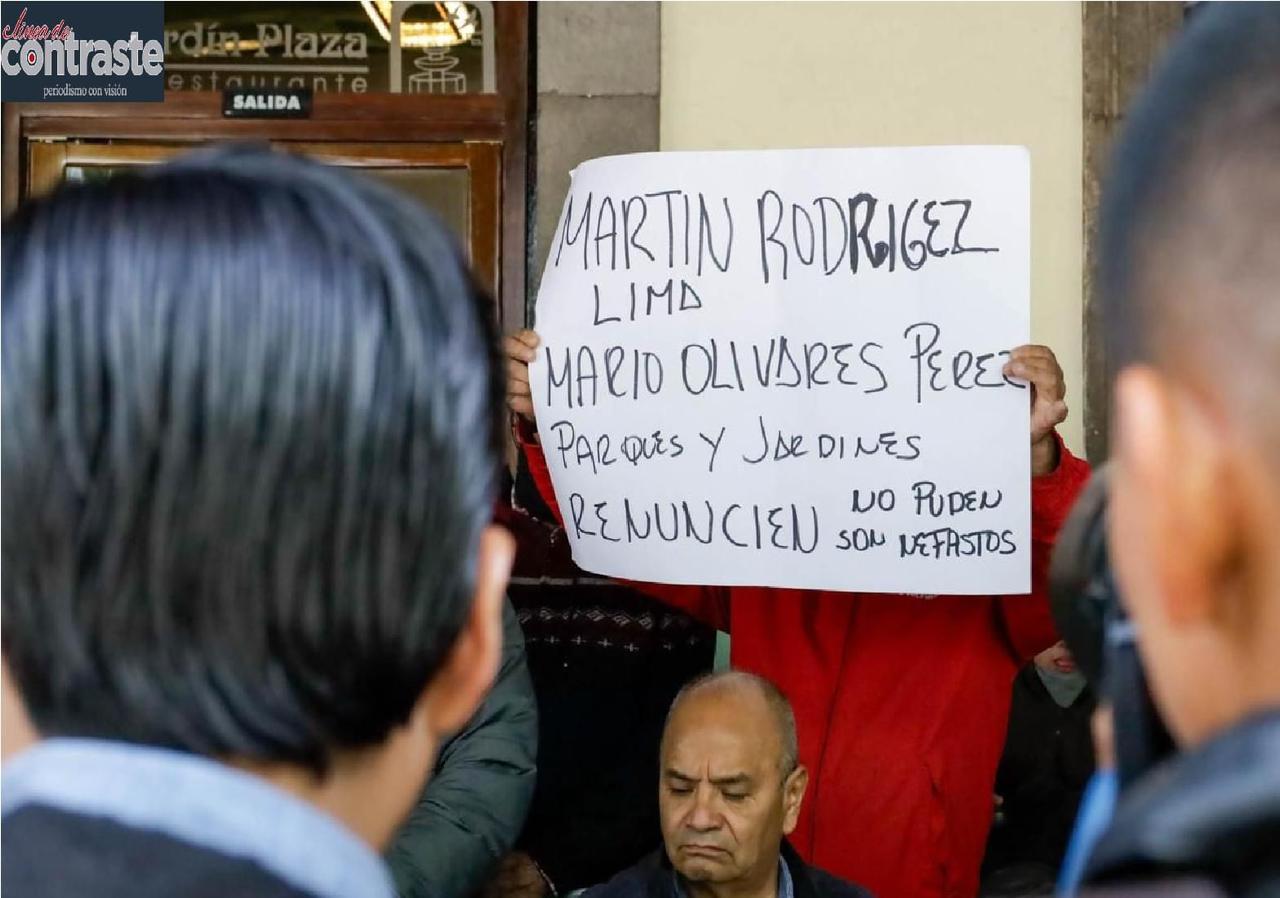 Línea de
contraste
periodismo con visión
rdín Plaza
estaurante
SALIDA
MARTIN RODRIGEZ
LIMA
MARIO OLIVARES PEREZ
PARQUES Y JARDINES
RENUNCIEN NO PUDEN
SON NEFASTOS